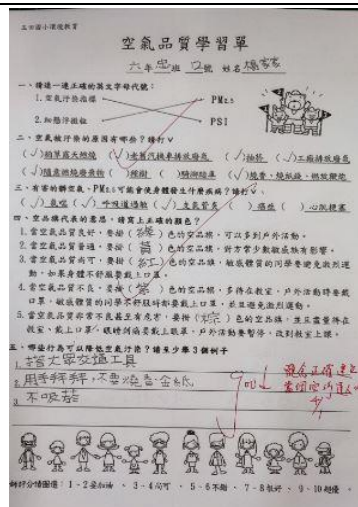 五田國小環境教育
空氣品質學習單
六年忠班 12號 姓名
一、請連一連正確的英文字母代號：
1.空氣汙染指標 PM2.5
2.細懸浮微粒 PSI
二、空氣被汙染的原因有哪些？請打ˇ
(✓)稻草露天燃燒 (✓)老舊汽機車排放廢氣 (✓)抽菸 (✓)工廠排放廢氣
(✓)隨意燃燒廢棄物 ( )種樹 ( )騎腳踏車 (✓)燒香、燒紙錢、燃放鞭炮
三、有害的髒空氣，PM2.5可能會使身體發生什麼疾病？請打ˇ
(✓)氣喘 (✓)呼吸道過敏 (✓)支氣管炎 ( )癌症 ( )心肌梗塞
四、空品旗代表的意思，請寫上正確的顏色？
1.當空氣品質良好，要掛(綠)色的空品旗，可以多到戶外活動。
2.當空氣品質普通，要掛(黃)色的空品旗，對非常少數敏感族有影響。
3.當空氣品質尚可，要掛(紅)色的空品旗，敏感體質的同學要避免激烈運
動，如果身體不舒服要戴上口罩。
4.當空氣品質不良，要掛(紫)色的空品旗，多待在教室，戶外活動時要戴
口罩，敏感體質的同學不舒服時都要戴上口罩，並且避免激烈運動。
5.當空氣品質非常不良甚至有危害，要掛(棕)色的空品旗，並且盡量待在
教室、戴上口罩，眼睛刺痛要戴上眼罩，戶外活動要暫停，改到教室上課。
五、哪些行為可以降低空氣汙染？請至少舉3個例子
1.搭大眾交通工具
2.用手拜拜，不要燒香、金紙
3.不吸菸
師評分請圈選：1-2要加油、3-4尚可、5-6不錯、7-8很好、9-10超優